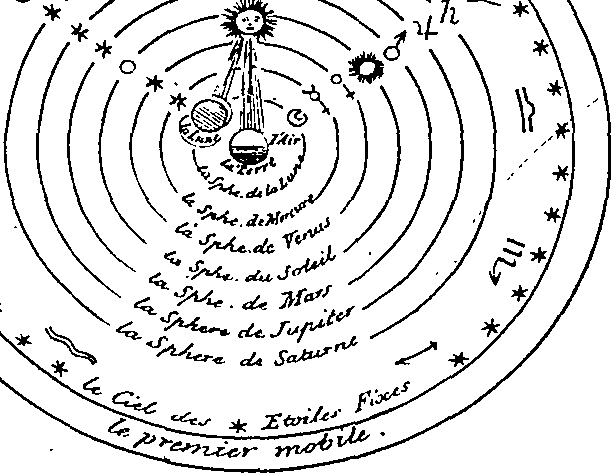 la Lune
l'Air
la Terre
la Sphe. de la Lune
la Sphe. de Mercure
la Sphe. de Venus
la Sphe. du Soleil
la Sphe. de Mars
la Sphere de Jupiter
la Sphere de Saturne
le Ciel des * Etoiles Fixes
le premier mobile.